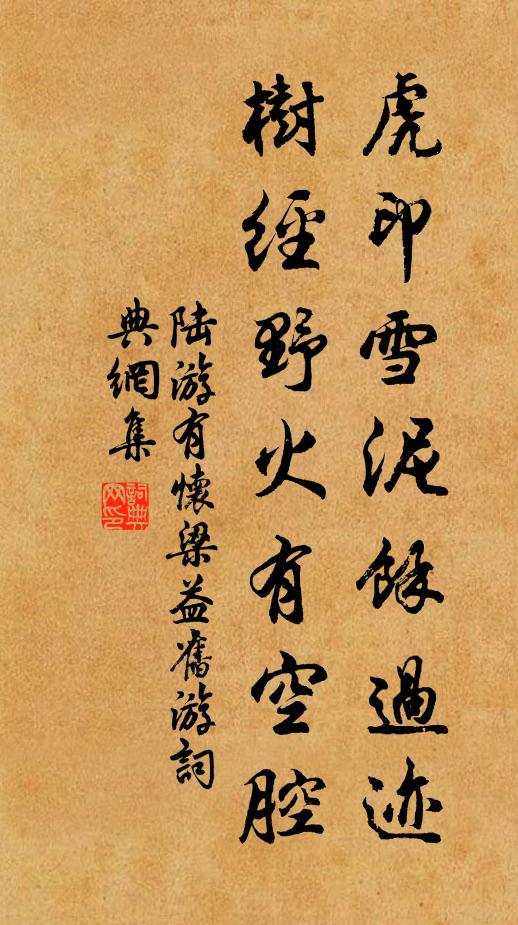 虎印雪泥餘過迹
樹經野火有空腔
陸游有懷梁益舊游詞
典網集
詞典
网印